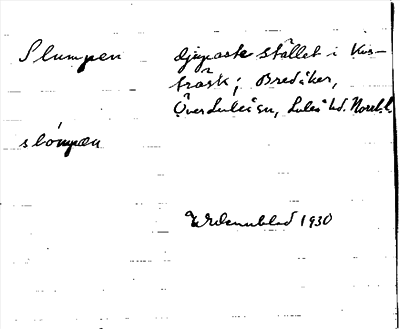 Slumpen
djupaste stället i Kus-
träsk; Bredåker,
Överluleå sn, Luleå td. Norrb.l.
slómpæn
1930